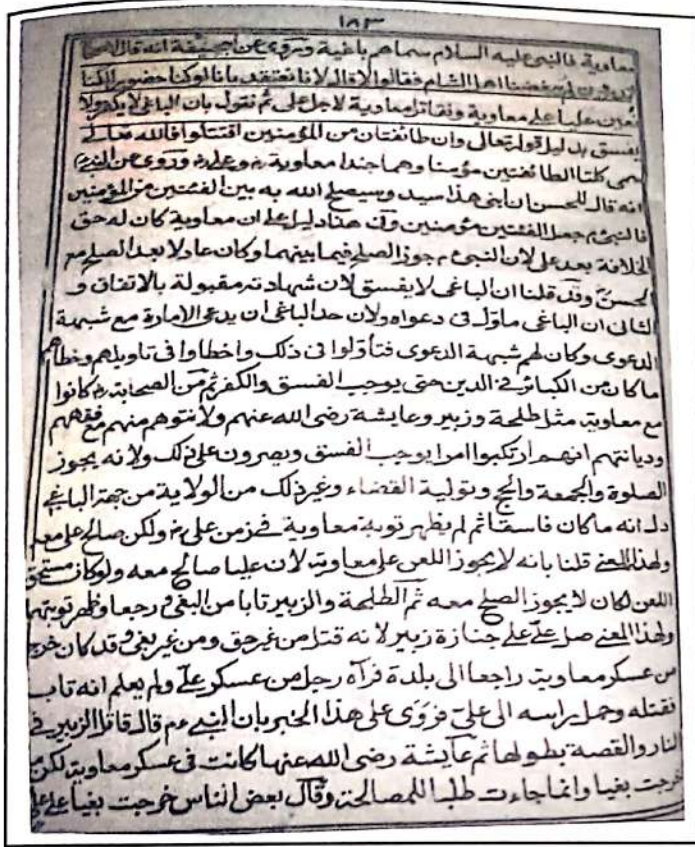 ١٨٣
معاوية فالنبى عليه السلام سماهم باغية وروى عن ابى حنيفة انه قال
لم يبغضنا اهل الشام فقالوا لا قال لانا نعتقد بانا لو كنا حضورا لكنا
نعين عليا على معاوية ونقاتل معاوية لاجل على ثم نقول بان الباغى لا يكفر ولا
يفسق بدليل قوله تعالى وان طائفتان من المؤمنين اقتتلوا فالله تعالى
سمى كلتا الطائفتين مؤمنا وهما جند معاوية رض وعلى رض وروى عن النبى م
انه قال للحسن ان ابنى هذا سيد وسيصلح الله به بين الفئتين من المؤمنين
فالنبى م جعل الفئتين مؤمنين وفى هذا دليل على ان معاوية كان له حق
الخلافة بعد على لان النبى م جوز الصلح فيما بينهما وكان عادلا بعد الصلح مع
الحسن وقد قلنا ان الباغى لا يفسق لان شهادته مقبولة بالاتفاق و
الثانى ان الباغى ماول فى دعواه ولان حد الباغى ان يدعى الامارة مع شبهة
الدعوى وكان لهم شبهة الدعوى فتأولوا فى ذلك واخطاوا فى تاويلهم وخطاهم
ما كان من الكبائر فى الدين حتى يوجب الفسق والكفر ثم من الصحابة رض كانوا
مع معاوية مثل طلحة وزبير وعايشة رضى الله عنهم ولا نتوهم منهم مع فقههم
وديانتهم انهم ارتكبوا امرا يوجب الفسق ويصرون على ذلك ولانه يجوز
الصلوة والجمعة والحج وتولية القضاء وغير ذلك من الولاية من جهة الباغى
دل انه ما كان فاسقا ثم لم يظهر توبة معاوية فى زمن على رض ولكن صالح على معه
ولهذا المعنى قلنا بانه لا يجوز اللعن على معاوية لان عليا صالح معه ولو كان مستحق
اللعن لكان لا يجوز الصلح معه ثم الطلحة والزبير تابا من البغى ورجعا وظهر توبتهما
ولهذا المعنى صل على على جنازة زبير لانه قتل من غير حق ومن غير بغى وقد كان خرج
من عسكر معاوية راجعا الى بلدة فرآه رجل من عسكر على ولم يعلم انه تاب
فقتله وحمل راسه الى على فروى على هذا الخبر بان النبى م قال قاتل الزبير فى
النار والقصة بطولها ثم عايشة رضى الله عنها كانت فى عسكر معاوية لكن
خرجت بغيا وانما جاءت طلبا للمصالحة وقال بعض الناس خرجت بغيا على على